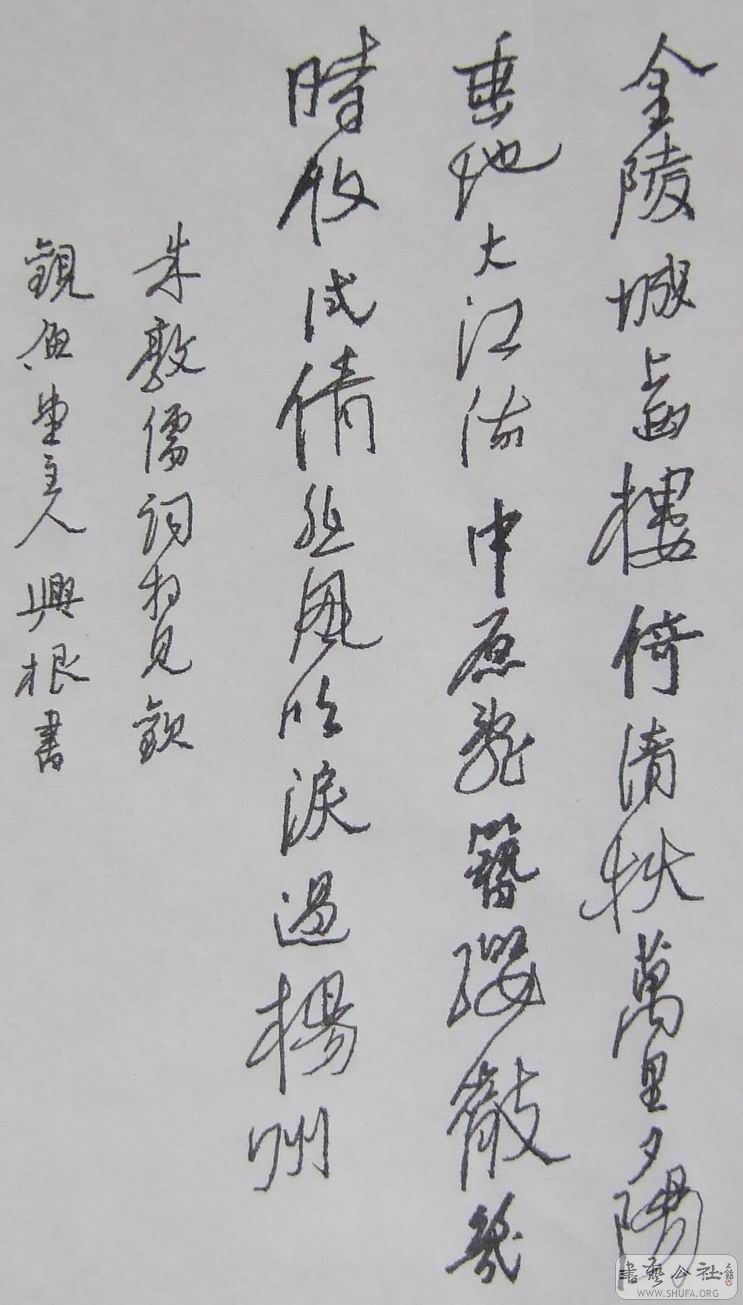 金陵城上西樓倚清秋萬里夕陽
垂地大江流中原亂簪纓散幾
時收试倩悲風吹淚過楊州
朱敦儒詞相見歡
觀魚堂主人興根書
書藝公社
WWW.SHUFA.ORG